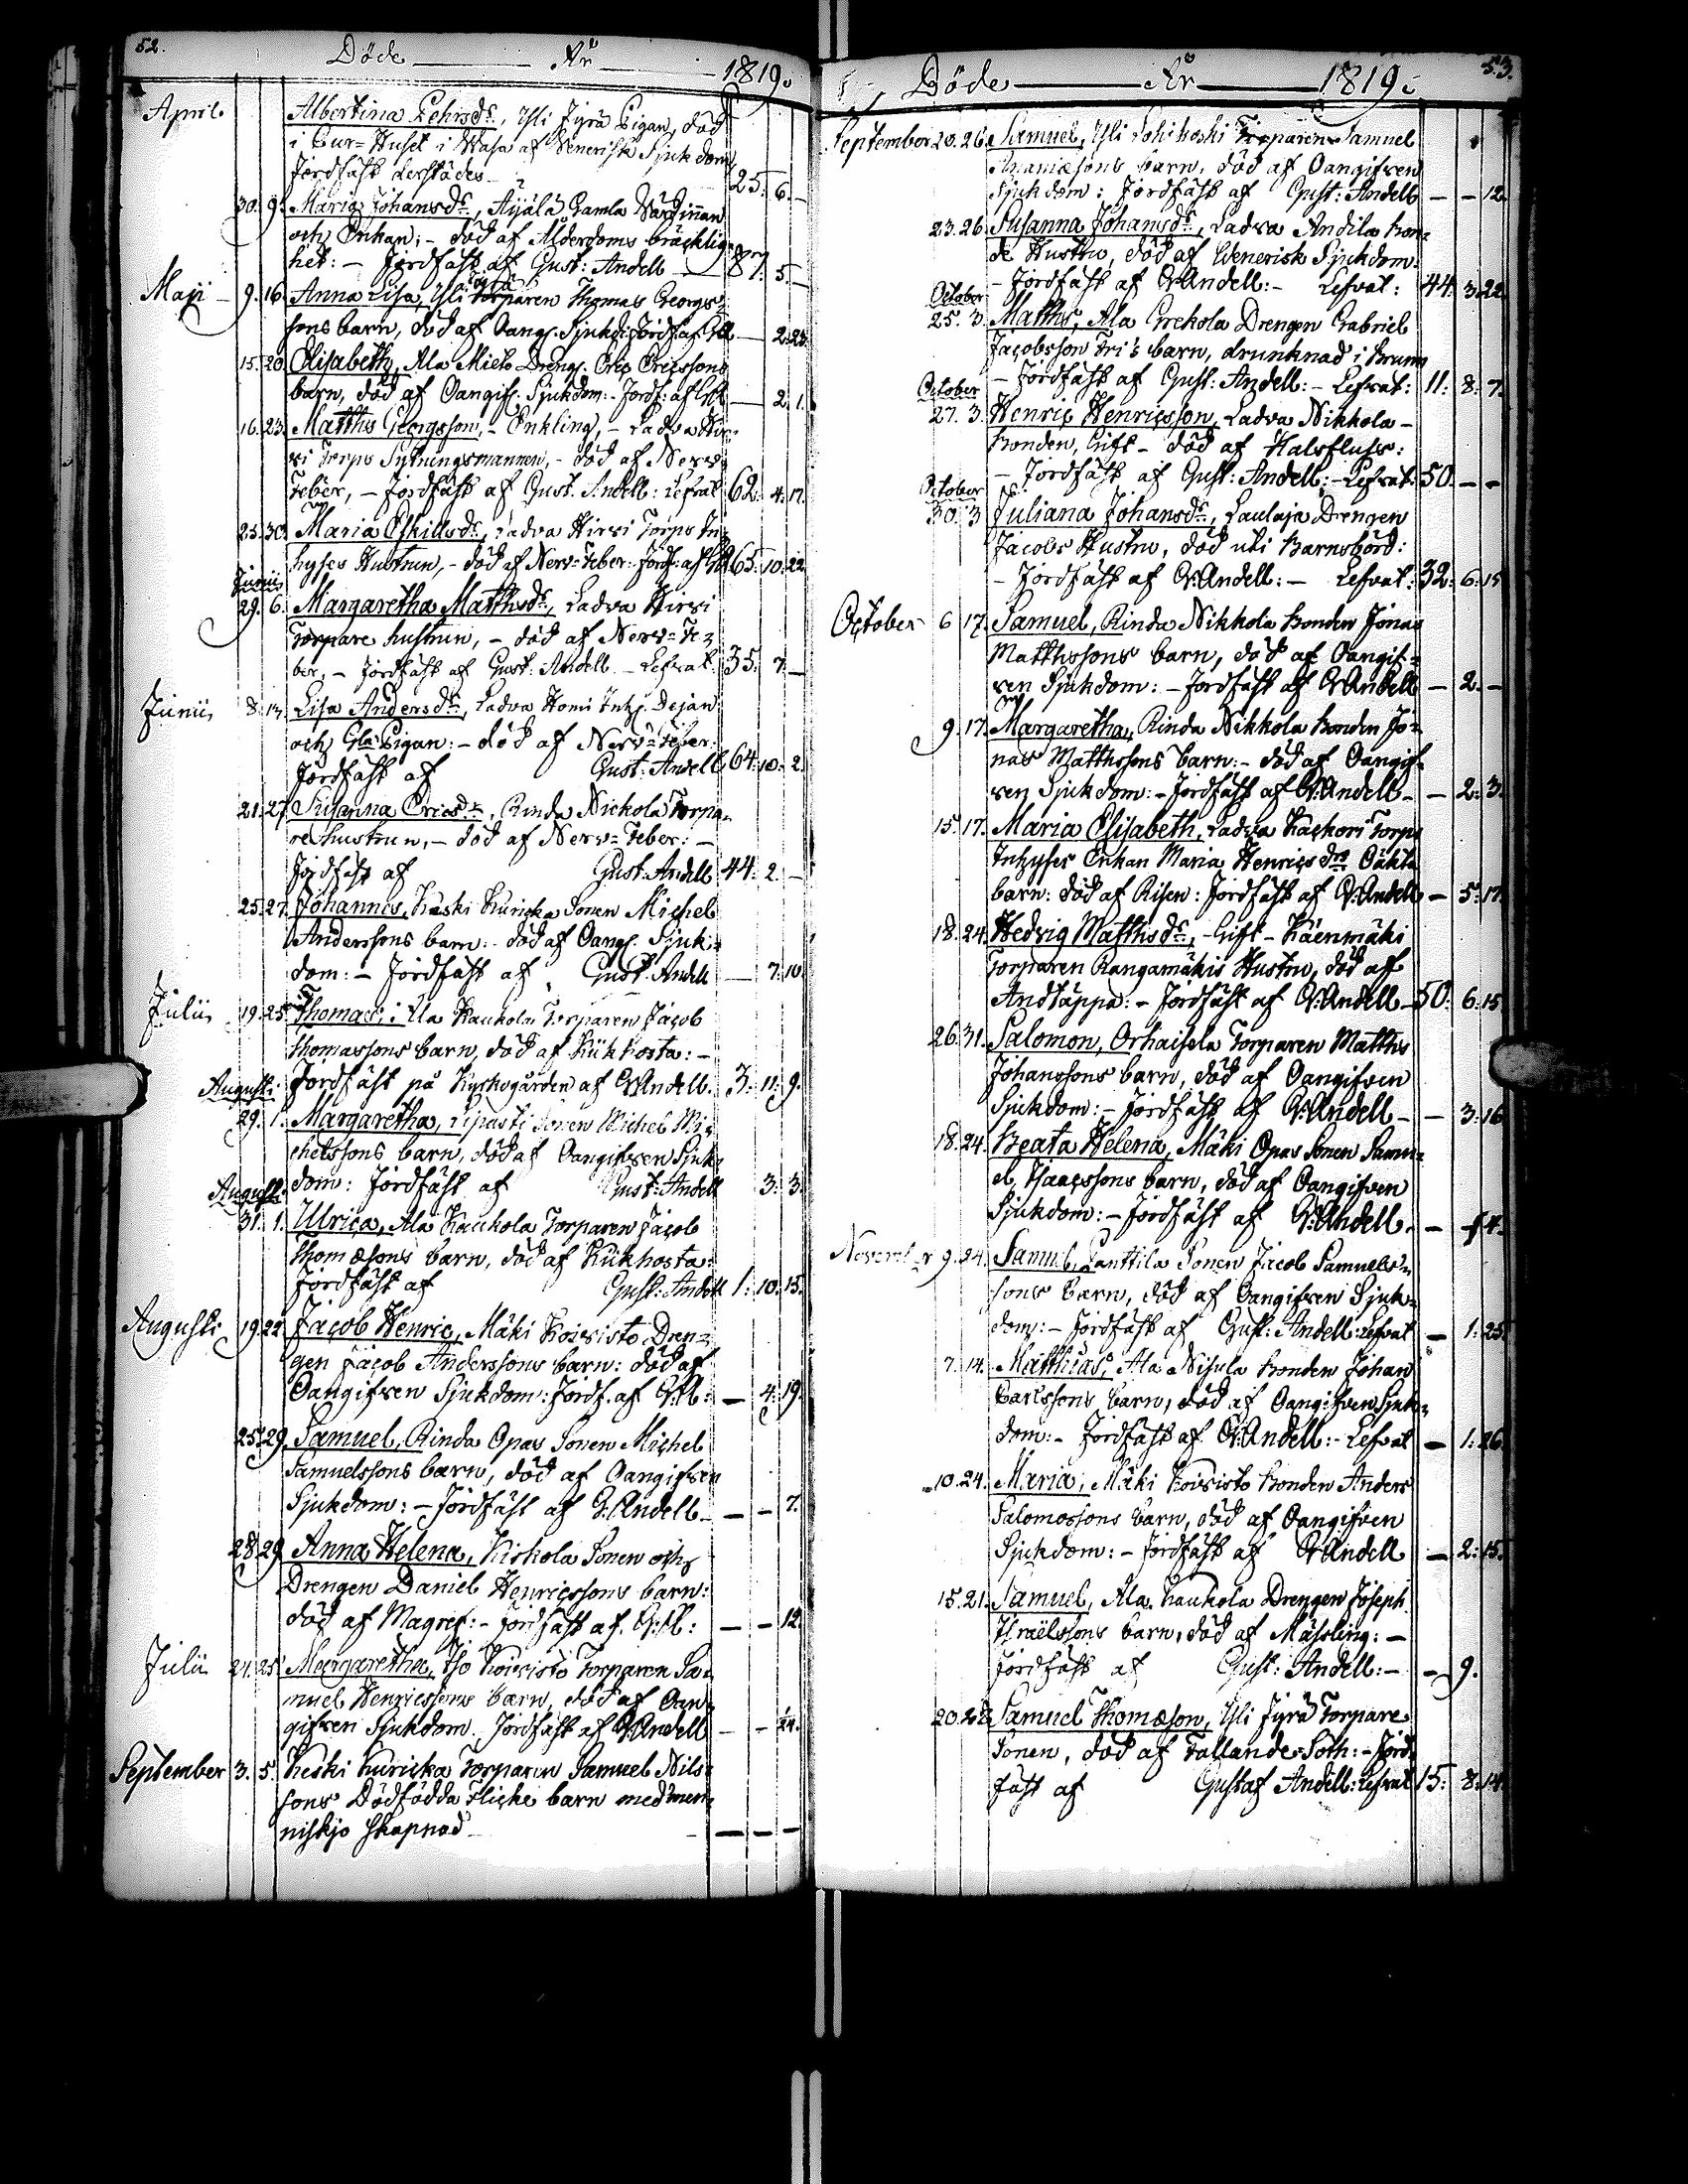 52.
Döde År 1819.
April. Albertina Pehrsdr, Yli Jyrä Pigan, död
i Cur-Huset i Wasa af Venerisk Sjukdom
Jordfäst derstädes 25. 6. –
30. 9. Maria Johansdr, Äijälä Gamla Värdinnan
och Enkan; – död af Ålderdoms bräcklig-
het: – Jordfäst af Gust: Andell – 87. 5. –
Maji 9. 16. Anna Lisa, Yli Torparen Thomas Georgs-
sons barn, död af Oang. Sjukd: Jordf. af — 2. 23.
15. 20. Elisabeth, Ala Mieto Dreng. Eric Ericssons
barn, död af Oangif. Sjukdom: – Jordf: af — 2. 1.
16. 23. Matths Georgsson, – Enkling, – Ladva Hir-
vi Torps Sytningsmannen, – död af Nerv-
Feber, – Jordfäst af Gust. Andell: Lefvat 62. 4. 17.
25. 30. Maria Eskilsdr, Ladva Hirvi Torps In-
hyses Hustrun, – död af Nerv-Feber: Jordf: af 65. 10. 22.
Junii
29. 6. Margaretha Matthsdr, Ladva Hirvi
Torpare hustrun, – död af Nerv-Fe-
ber, – Jordfäst af Gust: Andell – Lefvat: 35. 7. –
Junii 8. 13. Lisa Andersdr, Ladva Homi Inh. Dejan
och Gla Pigan: – död af Nerv-Feber:
Jordfäst af Gust: Andell 64. 10. 2.
21. 27. Susanna Ericsdr, Rinda Nickola Torpa-
re hustrun, – död af Nerv-Feber: –
Jordfäst af Gust: Andell 44. 2. –
25. 27. Johannes, Keski Kuricka Sonen Michel
Anderssons barn: – död af Oang. Sjuk-
dom: – Jordfäst af Gust: Andell — 7. 10.
Julii 19. 25. Thomas, i Ala Kaukola Torparen Jacob
Thomassons barn, död af Kikhosta: –
Jordfäst på Kyrkogården af G: Andell. 3. 11. 9.
Augusti
29. 1. Margaretha, Lipasti Sonen Michel Mi-
chelssons barn, död af Oangifven Sjuk-
dom: Jordfäst af Gust: Andell 3. 3.
Augusti
31. 1. Ulrica, Ala Kaukola Torparen Jacob
Thomæsons barn, död af Kikhosta:
Jordfäst af Gust: Andell 1. 10. 15.
Augusti 19. 22. Jacob Henric, Mäki Koivisto Dren-
gen Jacob Anderssons barn: död af
Oangifven Sjukdom: Jordf. af — 4. 19.
25. 29. Samuel, Rinda Opas Sonen Michel
Samuelssons barn, död af Oangifven
Sjukdom: – Jordfäst af G: Andell – — – 7.
28. 29. Anna Helena, Kiskola Sonen och
Drengen Daniel Henricssons barn:
död af Magref: – Jordfäst af — – 12.
Julii 21. 25. Margaretha, Iso Koivisto Torparen Sa-
muel Henricssons barn, död af Oan-
gifven Sjukdom. Jordfäst af G: Andell — – 24.
September 3. 5. Keski Kuricka Torparen Samuel Nils-
sons Dödfödda Flicke barn med men-
niskjo skapnad – — — —
53.
Döde År 1819.
September 20. 26. Samuel, Yli Torparen Samuel
Ananiæsons barn, död af Oangifven
Sjukdom: Jordfäst af Gust: Andell — – 12.
23. 26. Susanna Johansdr, Ladva Andila Bon-
de Hustru, död af Venerisk Sjukdom:
– Jordfäst af G: Andell: – Lefvat: 44. 3. 22.
October
25. 3. Matths, Ala Drengen Gabriel
Jacobsson Fri's barn, drunknad i Brunn
– Jordfäst af Gust: Andell: – Lefvat: 11. 8. 7.
October
27. 3. Henric Henricsson, Ladva Nikkola –
Bonden, Gift – död af Halsfluss:
– Jordfäst af Gust: Andell: – Lefvat: 50. – –
October
30. 3. Juliana Johansdr, Laulaja Drengen
Jacobs Hustru, död uti Barnsbörd:
– Jordfäst af G: Andell: – Lefvat: 32. 6. 15.
October 6 17. Samuel, Rinda Nikkola Bonden Jonas
Matthssons barn, död af Oangif-
ven Sjukdom: – Jordfäst af G: Andell — 2. –
9. 17. Margaretha, Rinda Nikkola Bonden Jo-
nas Matthssons barn: – död af Oangif-
ven Sjukdom: – Jordfäst af G: Andell – — 2. 3.
15. 17. Maria Elisabeth, Ladva Torps
Inhyses Enkan Maria Henricsdrs Oäkta
barn: död af Risen: Jordfäst af G: Andell — 5. 17.
18. 24. Hedvig Matthsdr, – Gift – Käenmäki
Torparen Rangamäkis Hustru, död af
Andtäppa: – Jordfäst af G: Andell – 50. 6. 15.
26. 31. Salomon, Orhaisala Torparen Matths
Johanssons barn, död af Oangifven
Sjukdom: – Jordfäst af G: Andell – — 3. 16.
18. 24. Beata Helena, Mäki Opas Sonen Samu-
el Isaacssons barn, död af Oangifven
Sjukdom: – Jordfäst af G: Andell. — – 14.
November 9. 24. Samuel, Lanttila Sonen Jacob Samuels-
sons barn, död af Oangifven Sjuk-
dom: – Jordfäst af Gust: Andell: Lefvat — 1. 25.
7. 14. Matthias, Ala Nisula Bonden Johan
Carlssons barn, död af Oangifven Sjuk-
dom: – Jordfäst af G: Andell: – Lefvat — 1. 26.
10. 24. Maria, Mäki Koivisto Bonden Anders
Salomossons barn, död af Oangifven
Sjukdom: – Jordfäst af G: Andell — 2. 15.
15. 21. Samuel, Ala Kaukola Drengen Joseph
Israëlssons barn, död af Mässling: –
Jordfäst af Gust: Andell: – — 9.
20. 28. Samuel Thomæson, Yli Jyrä Torpare
Sonen, död af Fallande-Soth: – Jord-
fäst af Gustaf Andell: Lefvat 15. 8. 14.